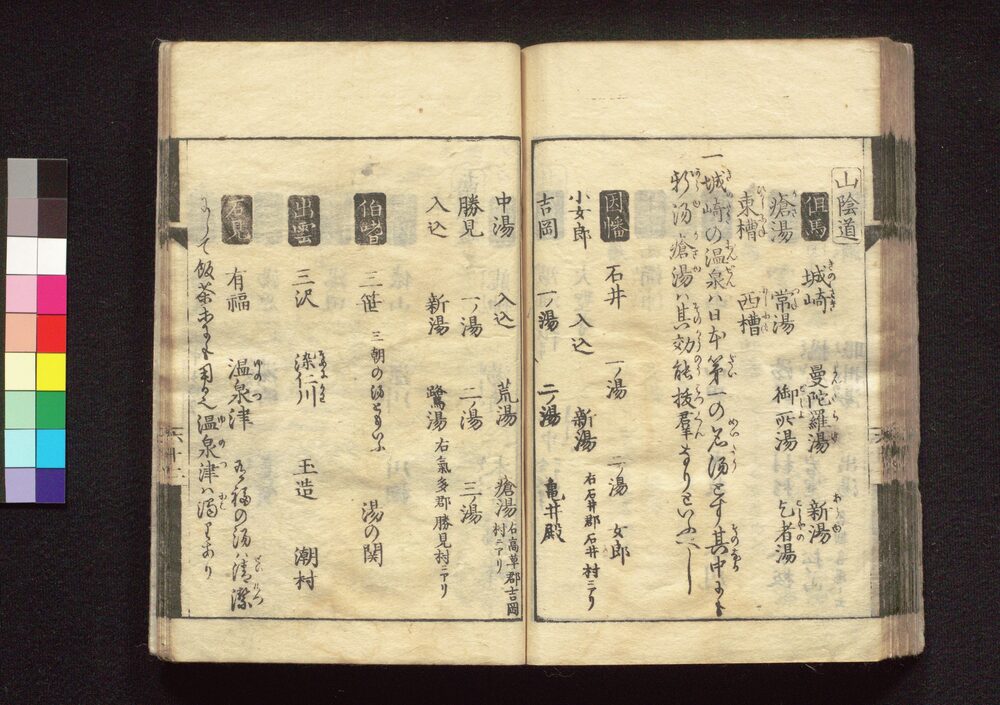 山陰道
但馬 城崎 曼陀羅湯 新湯
瘡湯 常湯 御所湯 乞者湯
東槽 西槽
一城崎の温泉ハ日本第一の名湯とす其中にも
新湯瘡湯ハ其効能抜羣なりといふべし
因幡 石井 一ノ湯 二ノ湯 女郎
小女郎 入込 新湯 右石井郡石井村ニアリ
吉岡 一ノ湯 二ノ湯 亀井殿
中湯 入込 荒湯 瘡湯 右高草郡吉岡村ニアリ
勝見 一ノ湯 二ノ湯 三ノ湯
入込 新湯 鷺湯 右氣多郡勝見村ニアリ
伯耆 三笹 三朝の湯ともいふ 湯の関
出雲 三沢 染仁川 玉造 潮村
石見 有福 温泉津 有福の湯ハ清潔
にして飯茶等にも用ゆべし温泉津ハ濁りあり